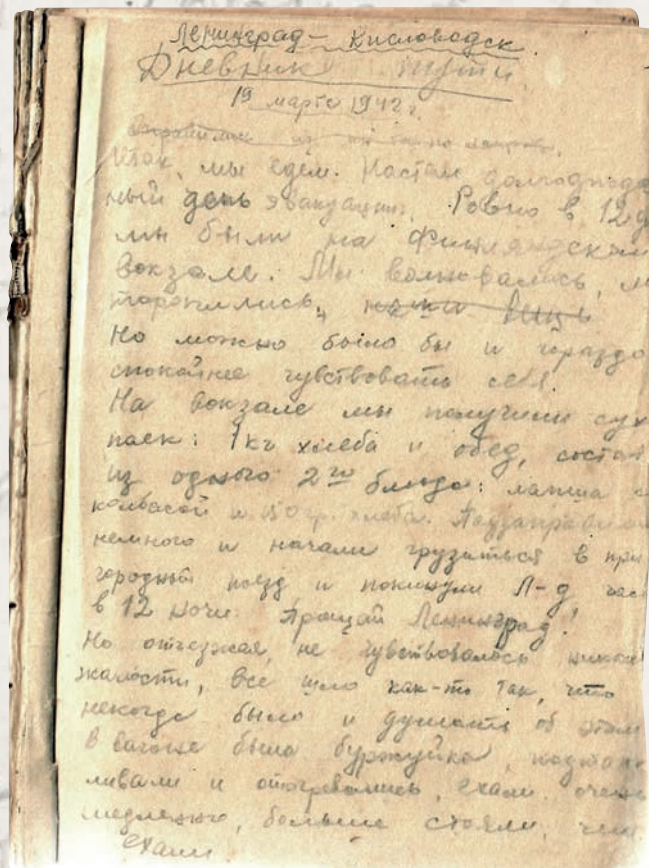 Ленинград – Кисловодск.
Дневник пути
19 марта 1942 г.
Итак, мы едем. Настал долгожда
ный день эвакуации. Ровно в 12 д
мы были на Финляндском
вокзале. Мы волновались,
торопились, наши вещи
Но можно было бы и гораздо
спокойнее чувствовать себя.
На вокзале мы получили сух
паек: 1 кг хлеба и обед, состоя
из одного 2го блюда: лапша с
колбасой и 150 гр. хлеба. Подзаправили
немного и начали грузиться в при
городный поезд и покинули Л-д час
в 12 ночи. Прощай Ленинград!
Но отъезжая, не чувствовалось никак
жалости, все шло как-то так, что
некогда было и думать об этом
В вагоне была буржуйка, подтап
ливали и отогревались, ехали очень
медленно, больше стояли, чем
ехали